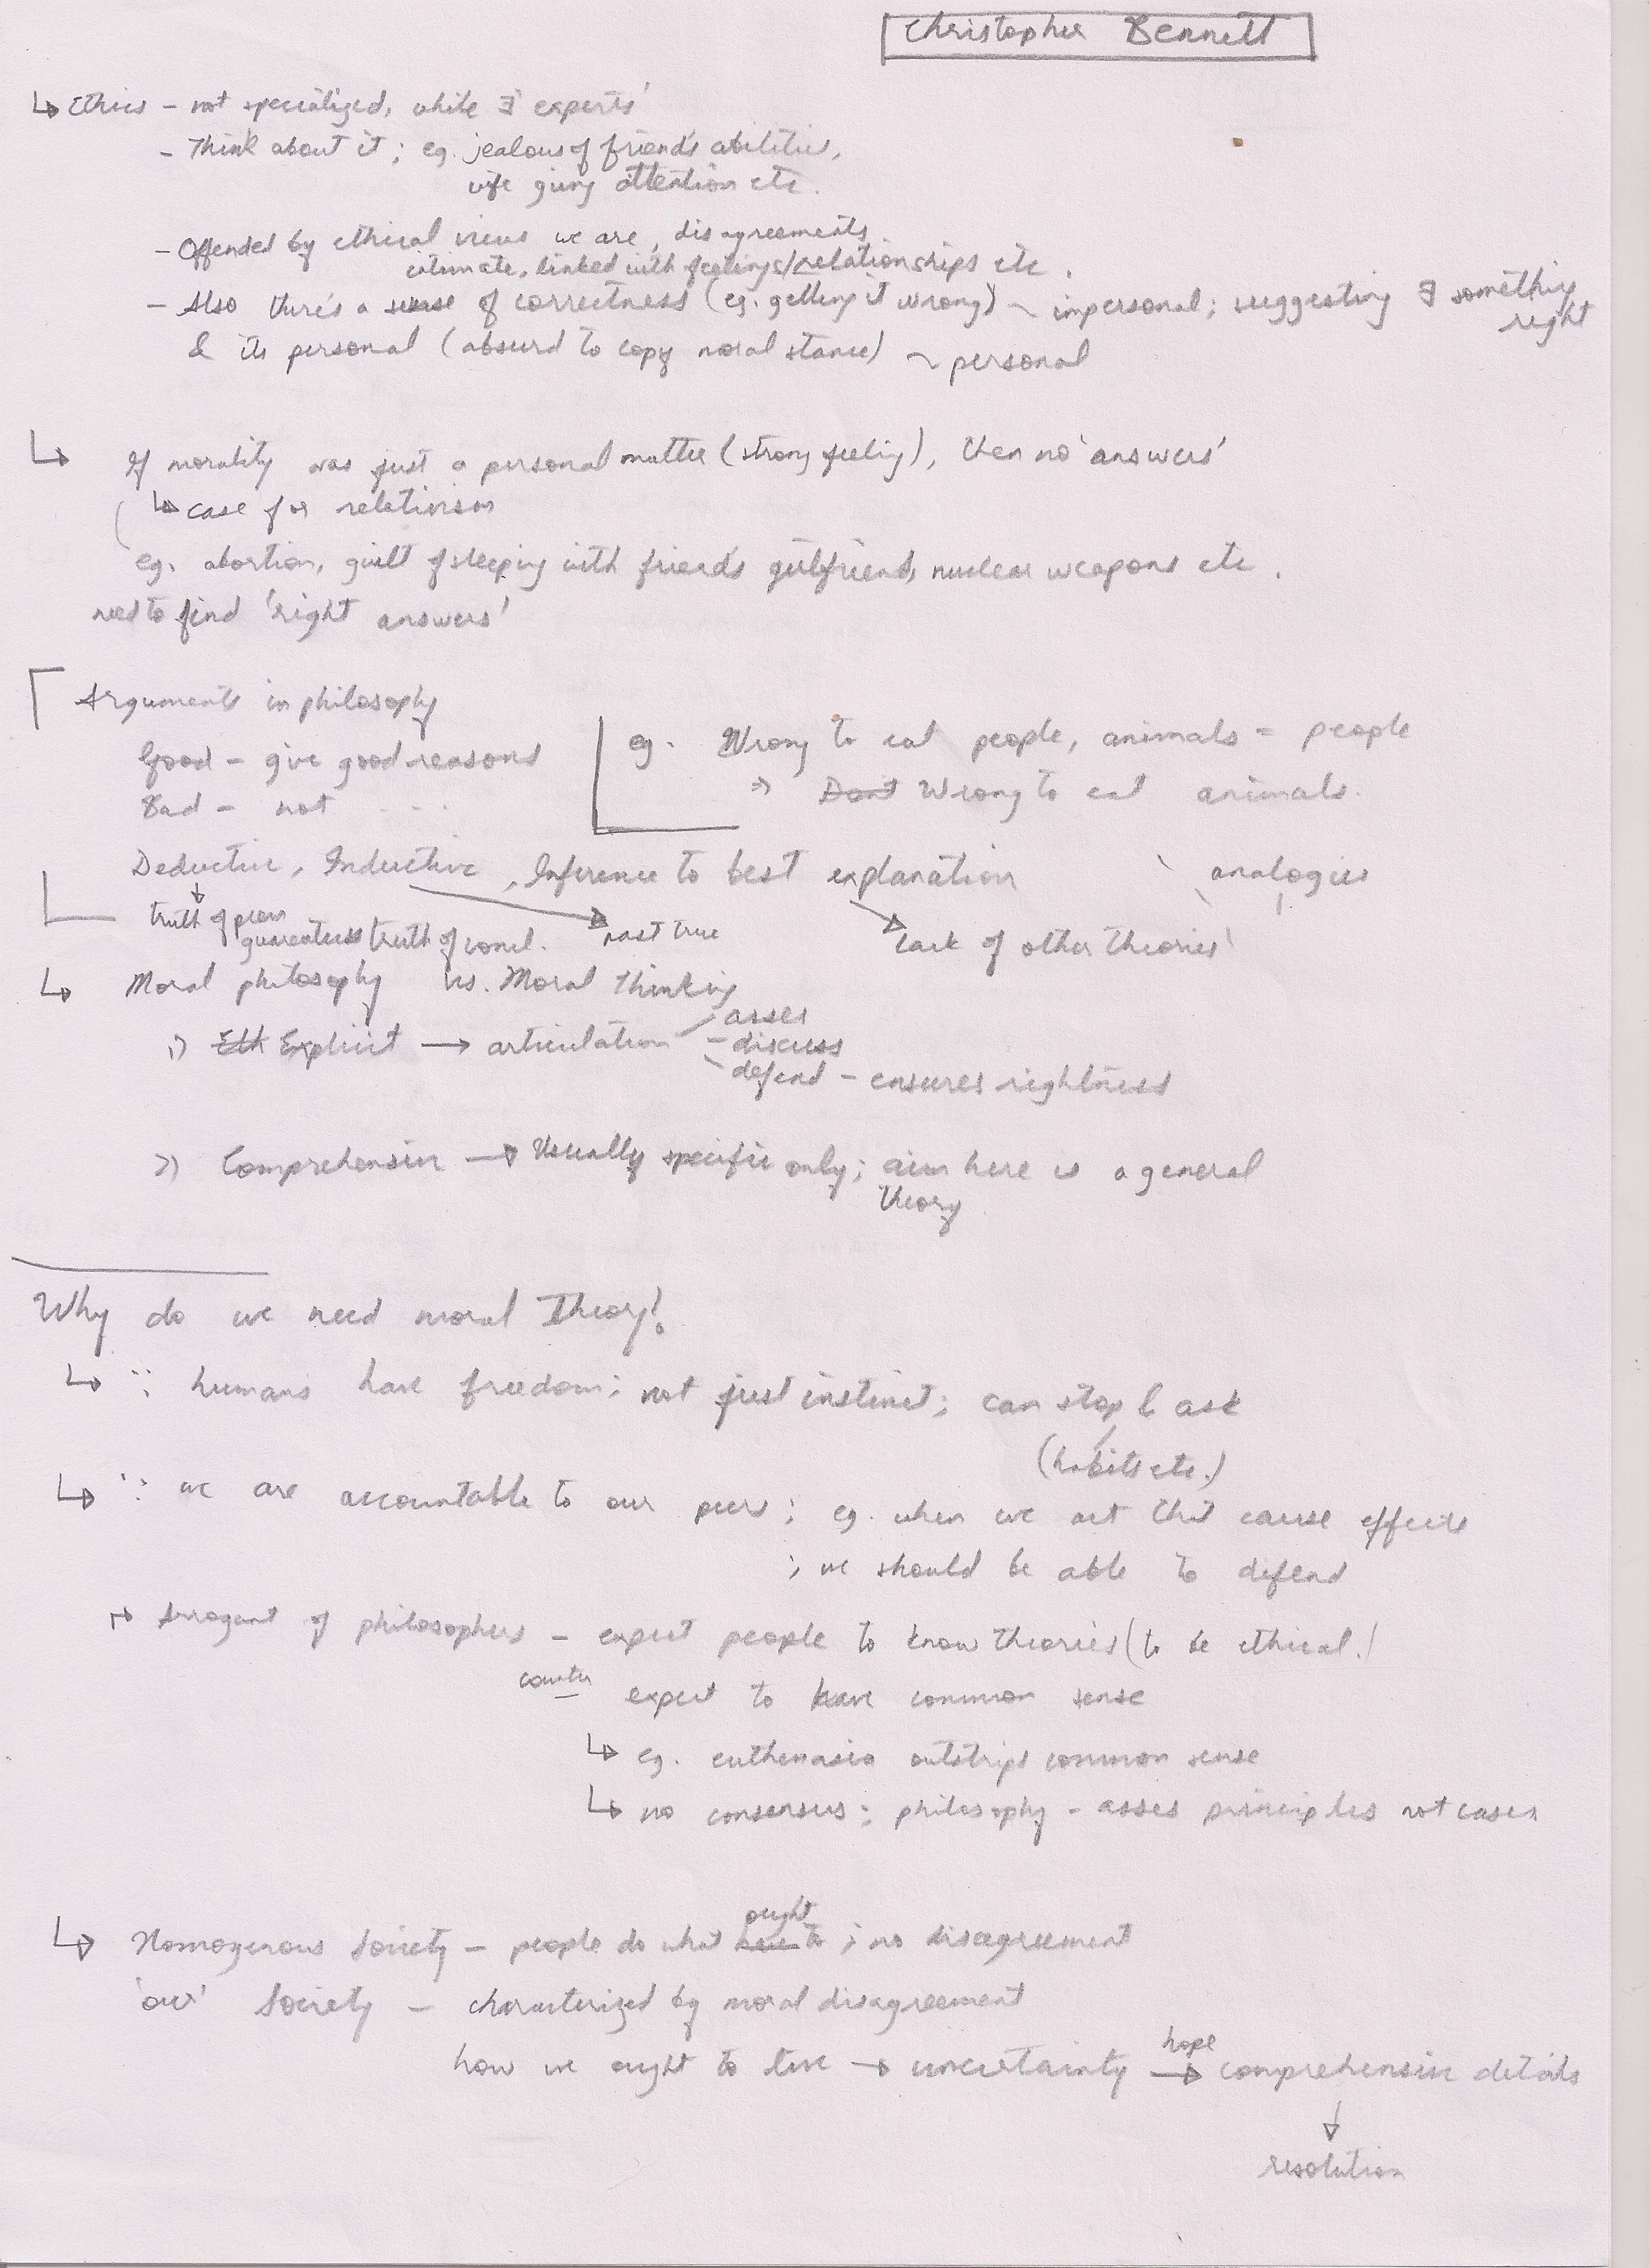 Christopher Bennett
↳ Ethics - not specialized, while ∃ 'experts'
- Think about it; eg. jealous of friends abilities,
wife giving attention etc.
- Offended by ethical views we are, disagreements
intimate, linked with feelings/relationships etc.
- Also there's a sense of correctness (eg. getting it wrong) ~ impersonal; suggesting ∃ something
right
& its personal (absurd to copy moral stance) ~ personal
↳ If morality was just a personal matter (strong feeling), then no 'answers'
↳ case for relativism
eg. abortion, guilt of sleeping with friends girlfriend, nuclear weapons etc.
need to find 'right answers'
Arguments in philosophy
Good - give good reasons
Bad - not - - -
eg. Wrong to eat people, animals = people
⇒ Dont Wrong to eat animals.
Deductive, Inductive, Inference to best explanation analogies
truth of prem
guarentees truth of concl. most true
lack of other theories
↳ Moral philosophy vs. Moral Thinking
1) Eth Explicit → articulation - asses
- discuss
- defend - ensures rightness
2) Comprehensive → Usually specific only; aim here is a general
theory
Why do we need moral Theory?
↳ ∵ humans have freedom; not just instinct; can stop & ask
(habits etc.)
↳ ∵ we are accountable to our peers; eg. when we act that cause effects
; we should be able to defend
↳ Arrogant of philosophers - expect people to know theories (to be ethical!)
counter
expect to have common sense
↳ eg. euthenasia outstrips common sense
↳ no consensus; philosophy - asses principles not cases
ought
↳ Homogenous Society - people do what have to ; no disagreement
'our' Society - characterized by moral disagreement
how we ought to live → uncertainty → comprehensive details
hope
↓
resolution